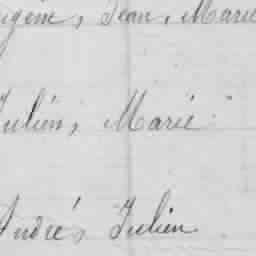 Eugène, Jean, Marie
Julien, Marie
André, Julien